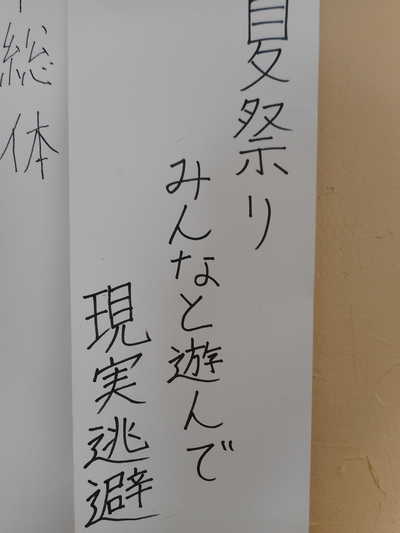 夏祭り
みんなと遊んで
現実逃避
総体